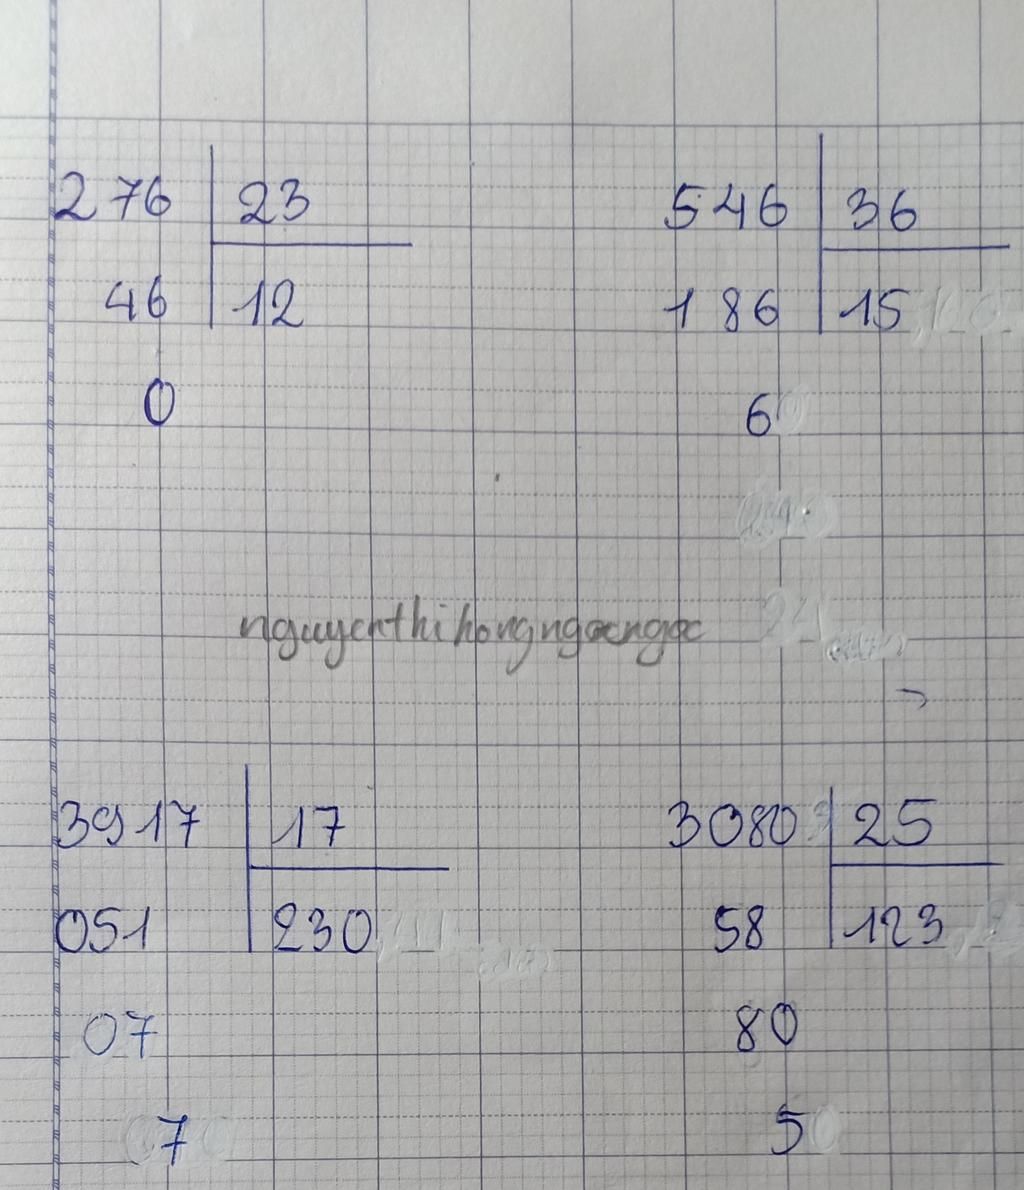 276 23
46 12
0
546 36
186 15
6
nguyenthihongngocngoc
3917 17
051 230
07
7
3080 25
58 123
80
5